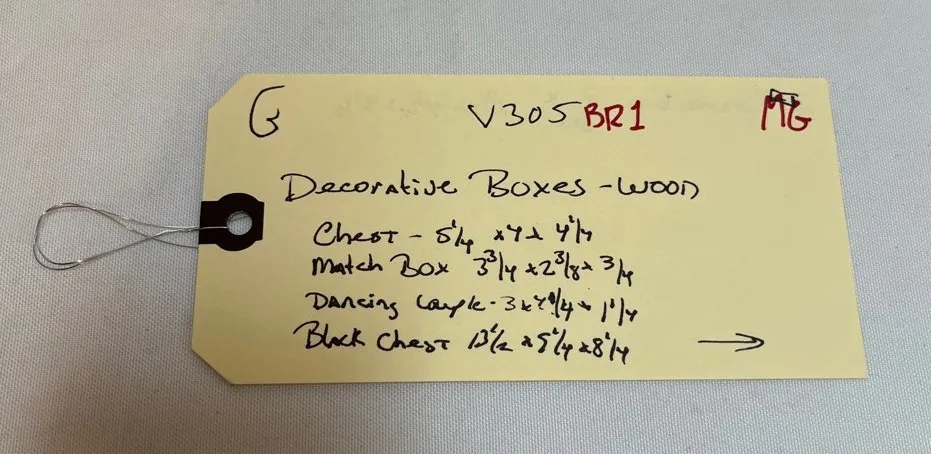 V305 BR1 MG
Decorative Boxes - Wood
Chest - 5 1/4 x 4 x 4 1/4
Match Box 3 3/4 x 2 3/8 x 3/4
Dancing Couple - 3 x 4 1/4 x 1 1/4
Black Chest 13 1/2 x 9 1/4 x 8 1/4 →